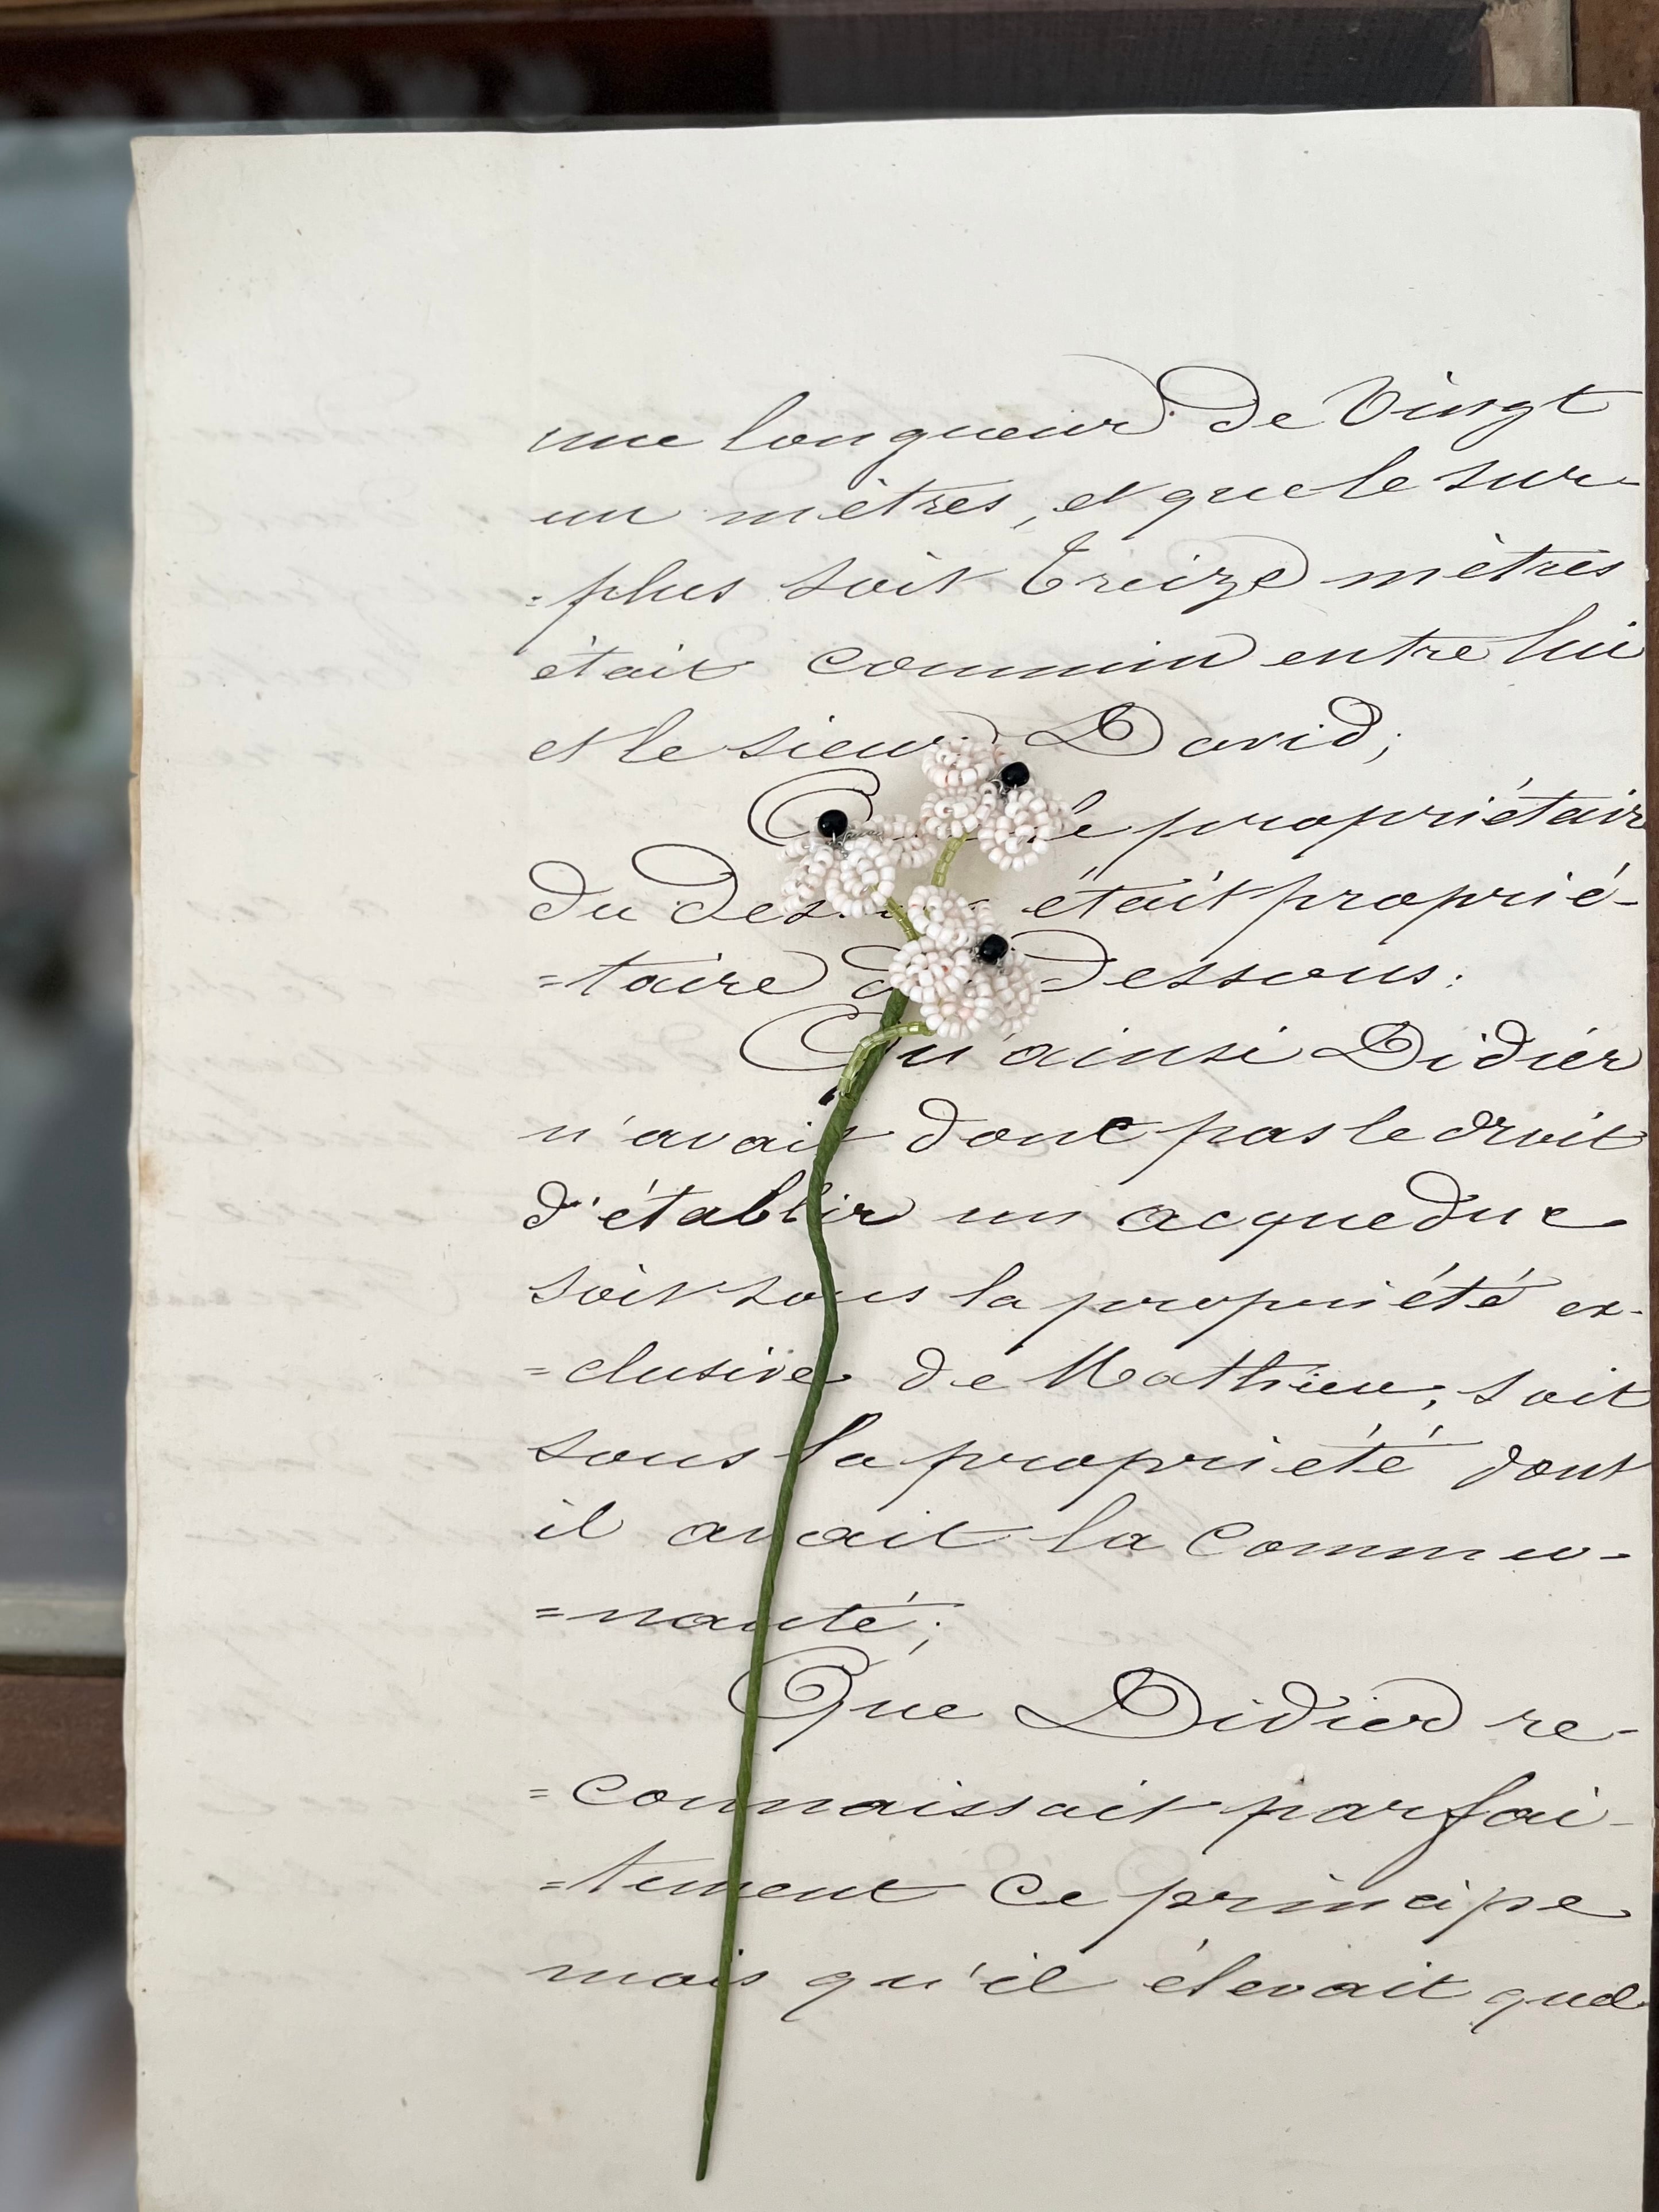 une longueur de Vingt
un mètres, et que le sur-
=plus soit Treize mètres
était commun entre lui
et le sieur David;
le propriétair
du des... était proprié-
=taire d dessous:
Qu'ainsi Didier
n'avait donc pas le droit
d'établir un acqueduc
soit sous la propriété ex-
=clusive de Mathieu, soit
sous la propriété dont
il avait la commu-
=nauté;
Que Didier re-
=connaissait parfai-
=tement ce principe
mais qu'il élevait quel